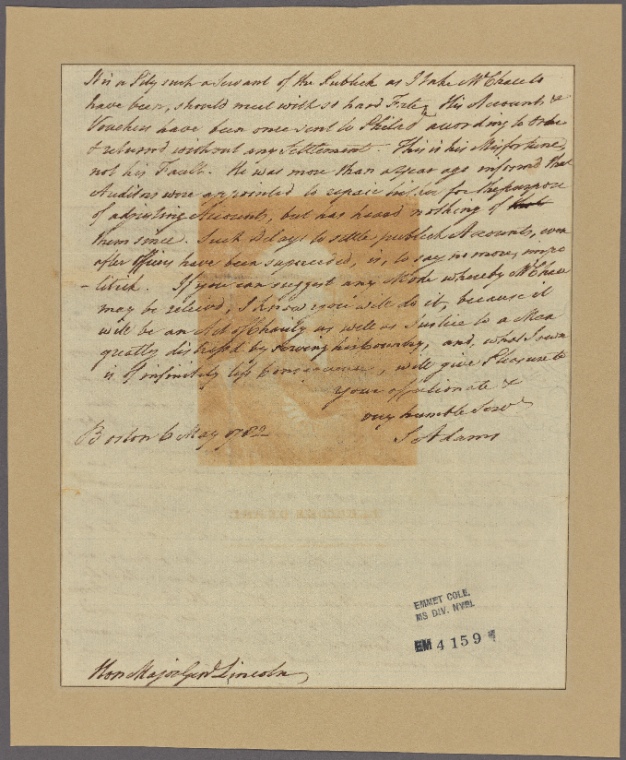 It is a Pity such a Servant of the Publick as I take Mr Chace to
have been, should meet with so hard Fate. His Accounts &
Vouchers have been once sent to Philad according to order
& returned without any Settlement. This is his Misfortune,
not his Fault. He was more than a year ago informd that
Auditors were appointed to repair hither for the purpose
of adjusting Accounts, but has heard nothing of
them since. Such Delays to settle publick Accounts, even
after Officers have been superceded, is, to say no more, impo
-litick. If you can suggest any Mode whereby Mr Chace
may be relievd, I know you will do it, because it
will be an Act of Charity as well as Justice to a Man
greatly distressd by serving his Country, and, what I own
is of infinitely less Consequence, will give Pleasure to
your affectionate &
very humble Servt
S Adams
Boston 6 May 1782
EMMET COLL.
MS DIV. NYPL
EM 4159
Hon Major Genl Lincoln